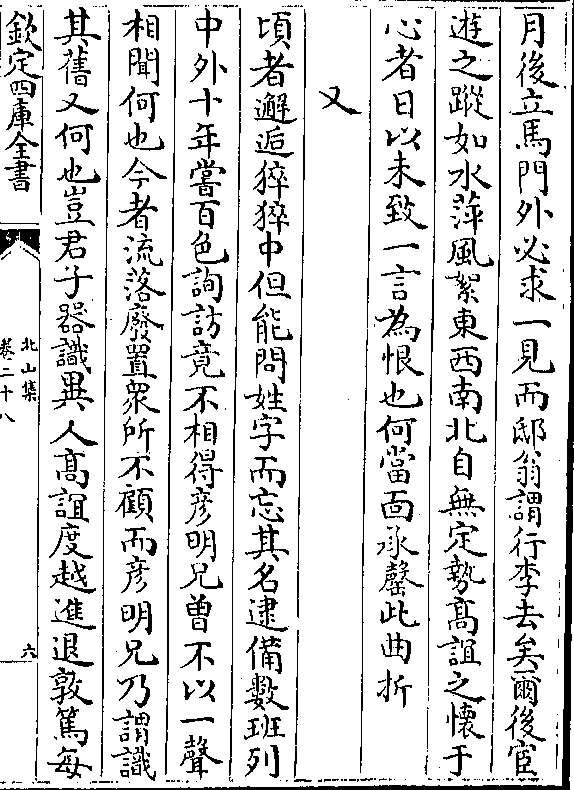 月後立馬門外必求一見而邸翁謂行李去矣爾後宦
遊之蹤如水萍風絮東西南北自無定勢髙誼之懷于
心者日以未致一言為恨也何當靣承罄此曲折
又
頃者邂逅猝猝中但能問姓字而忘其名逮備數班列
中外十年嘗百色詢訪竟不相得彦明兄曽不以一聲
相聞何也今者流落廢置衆所不顧而彦明兄乃謂識
其舊又何也豈君子器識異人髙誼度越進退敦篤每
欽定四庫全書
北山集
卷二十八
六